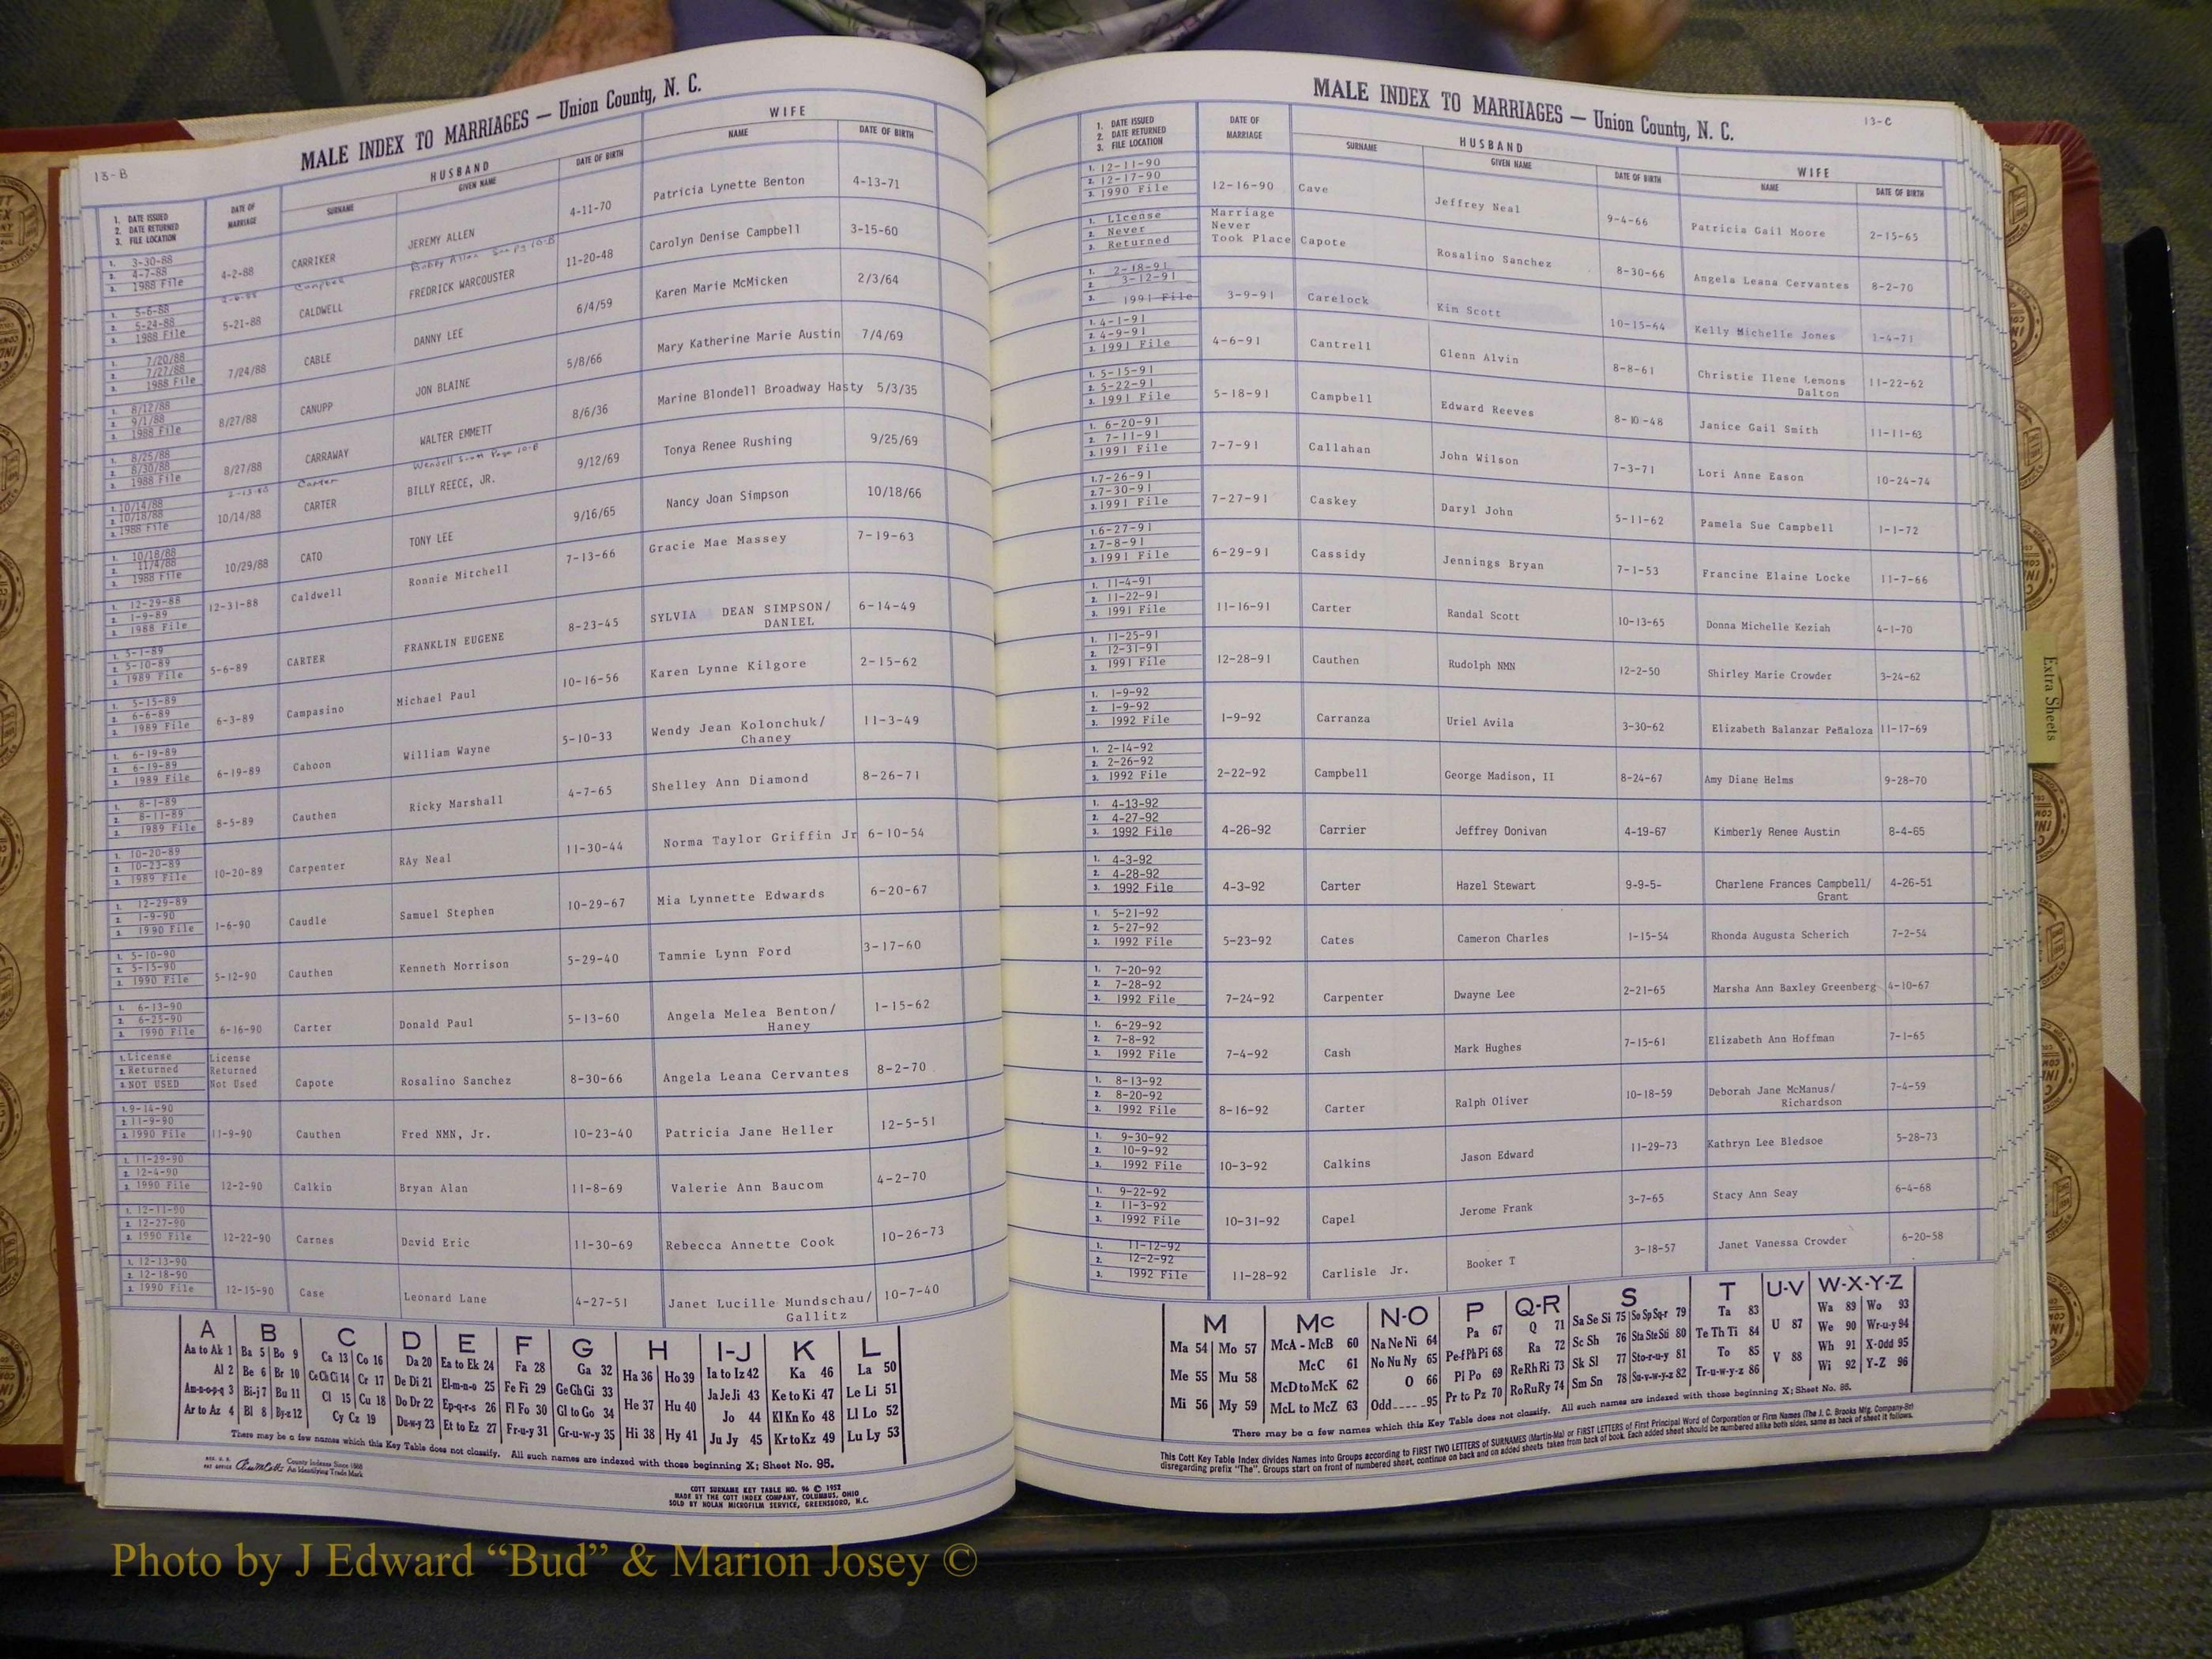 13-B
MALE INDEX TO MARRIAGES — Union County, N. C.
1. DATE ISSUED
2. DATE RETURNED
3. FILE LOCATION
DATE OF MARRIAGE
HUSBAND
SURNAME
GIVEN NAME
DATE OF BIRTH
WIFE
NAME
DATE OF BIRTH
1. 3-30-88
2. 4-7-88
3. 1988 File
4-2-88 CARRIKER JEREMY ALLEN 4-11-70 Patricia Lynette Benton 4-13-71
Campbell Bobby Allen See Pg 10-B
1. 5-6-88
2. 5-24-88
3. 1988 File
5-21-88 CALDWELL FREDRICK WARCOUSTER 11-20-48 Carolyn Denise Campbell 3-15-60
1. 7/20/88
2. 7/27/88
3. 1988 File
7/24/88 CABLE DANNY LEE 6/4/59 Karen Marie McMicken 2/3/64
1. 8/12/88
2. 9/1/88
3. 1988 File
8/27/88 CANUPP JON BLAINE 5/8/66 Mary Katherine Marie Austin 7/4/69
1. 8/25/88
2. 8/30/88
3. 1988 File
8/27/88 CARRAWAY WALTER EMMETT 8/6/36 Marine Blondell Broadway Hasty 5/3/35
2-13-88 Carter Wendell Scott Page 10-B
1. 10/14/88
2. 10/18/88
3. 1988 File
10/14/88 CARTER BILLY REECE, JR. 9/12/69 Tonya Renee Rushing 9/25/69
1. 10/18/88
2. 11/4/88
3. 1988 File
10/29/88 CATO TONY LEE 9/16/65 Nancy Joan Simpson 10/18/66
1. 12-29-88
2. 1-9-89
3. 1988 File
12-31-88 Caldwell Ronnie Mitchell 7-13-66 Gracie Mae Massey 7-19-63
1. 5-1-89
2. 5-10-89
3. 1989 File
5-6-89 CARTER FRANKLIN EUGENE 8-23-45 SYLVIA DEAN SIMPSON/ 6-14-49
DANIEL
1. 5-15-89
2. 6-6-89
3. 1989 File
6-3-89 Campasino Michael Paul 10-16-56 Karen Lynne Kilgore 2-15-62
1. 6-19-89
2. 6-19-89
3. 1989 File
6-19-89 Cahoon William Wayne 5-10-33 Wendy Jean Kolonchuk/ 11-3-49
Chaney
1. 8-1-89
2. 8-11-89
3. 1989 File
8-5-89 Cauthen Ricky Marshall 4-7-65 Shelley Ann Diamond 8-26-71
1. 10-20-89
2. 10-23-89
3. 1989 File
10-20-89 Carpenter RAy Neal 11-30-44 Norma Taylor Griffin Jr 6-10-54
1. 12-29-89
2. 1-9-90
3. 1990 File
1-6-90 Caudle Samuel Stephen 10-29-67 Mia Lynnette Edwards 6-20-67
1. 5-10-90
2. 5-15-90
3. 1990 File
5-12-90 Cauthen Kenneth Morrison 5-29-40 Tammie Lynn Ford 3-17-60
1. 6-13-90
2. 6-25-90
3. 1990 File
6-16-90 Carter Donald Paul 5-13-60 Angela Melea Benton/ 1-15-62
Haney
1. License
2. Returned
3. NOT USED
License
Returned
Not Used
Capote Rosalino Sanchez 8-30-66 Angela Leana Cervantes 8-2-70
1. 9-14-90
2. 11-9-90
3. 1990 File
11-9-90 Cauthen Fred NMN, Jr. 10-23-40 Patricia Jane Heller 12-5-51
1. 11-29-90
2. 12-4-90
3. 1990 File
12-2-90 Calkin Bryan Alan 11-8-69 Valerie Ann Baucom 4-2-70
1. 12-11-90
2. 12-27-90
3. 1990 File
12-22-90 Carnes David Eric 11-30-69 Rebecca Annette Cook 10-26-73
1. 12-13-90
2. 12-18-90
3. 1990 File
12-15-90 Case Leonard Lane 4-27-51 Janet Lucille Mundschau/ 10-7-40
Gallitz
A B C D E F G H I-J K L
Aa to Ak 1 Ba 5 Bo 9 Ca 13 Co 16 Da 20 Ea to Ek 24 Fa 28 Ga 32 Ha 36 Ho 39 Ia to Iz 42 Ka 46 La 50
Al 2 Be 6 Br 10 Ce Ch Ci 14 Cr 17 De Di 21 El-m-n-o 25 Fe Fi 29 Ge Gh Gi 33 He 37 Hu 40 Ja Je Ji 43 Ke to Ki 47 Le Li 51
Am-n-o-p-q 3 Bi-j 7 Bu 11 Cl 15 Cu 18 Do Dr 22 Ep-q-r-s 26 Fl Fo 30 Gl to Go 34 Hi 38 Hy 41 Jo 44 Kl Kn Ko 48 Ll Lo 52
Ar to Az 4 Bl 8 By-z 12 Cy Cz 19 Du-w-y 23 Et to Ez 27 Fr-u-y 31 Gr-u-w-y 35 Ju Jy 45 Kr to Kz 49 Lu Ly 53
There may be a few names which this Key Table does not classify. All such names are indexed with those beginning X; Sheet No. 95.
County Indexes Since 1888
An Identifying Trade Mark
COTT SURNAME KEY TABLE NO. 96 © 1952
MADE BY THE COTT INDEX COMPANY, COLUMBUS, OHIO
SOLD BY NOLAN MICROFILM SERVICE, GREENSBORO, N.C.
13-C
MALE INDEX TO MARRIAGES — Union County, N. C.
1. DATE ISSUED
2. DATE RETURNED
3. FILE LOCATION
DATE OF MARRIAGE
HUSBAND
SURNAME
GIVEN NAME
DATE OF BIRTH
WIFE
NAME
DATE OF BIRTH
1. 12-11-90
2. 12-17-90
3. 1990 File
12-16-90 Cave Jeffrey Neal 9-4-66 Patricia Gail Moore 2-15-65
1. License
2. Never
3. Returned
Marriage
Never
Took Place
Capote Rosalino Sanchez 8-30-66 Angela Leana Cervantes 8-2-70
1. 2-18-91
2. 3-12-91
3. 1991 File
3-9-91 Carelock Kim Scott 10-15-64 Kelly Michelle Jones 1-4-71
1. 4-1-91
2. 4-9-91
3. 1991 File
4-6-91 Cantrell Glenn Alvin 8-8-61 Christie Ilene Lemons 11-22-62
Dalton
1. 5-15-91
2. 5-22-91
3. 1991 File
5-18-91 Campbell Edward Reeves 8-10-48 Janice Gail Smith 11-11-63
1. 6-20-91
2. 7-11-91
3. 1991 File
7-7-91 Callahan John Wilson 7-3-71 Lori Anne Eason 10-24-74
1. 7-26-91
2. 7-30-91
3. 1991 File
7-27-91 Caskey Daryl John 5-11-62 Pamela Sue Campbell 1-1-72
1. 6-27-91
2. 7-8-91
3. 1991 File
6-29-91 Cassidy Jennings Bryan 7-1-53 Francine Elaine Locke 11-7-66
1. 11-4-91
2. 11-22-91
3. 1991 File
11-16-91 Carter Randal Scott 10-13-65 Donna Michelle Keziah 4-1-70
1. 11-25-91
2. 12-31-91
3. 1991 File
12-28-91 Cauthen Rudolph NMN 12-2-50 Shirley Marie Crowder 3-24-62
1. 1-9-92
2. 1-9-92
3. 1992 File
1-9-92 Carranza Uriel Avila 3-30-62 Elizabeth Balanzar Peñaloza 11-17-69
1. 2-14-92
2. 2-26-92
3. 1992 File
2-22-92 Campbell George Madison, II 8-24-67 Amy Diane Helms 9-28-70
1. 4-13-92
2. 4-27-92
3. 1992 File
4-26-92 Carrier Jeffrey Donivan 4-19-67 Kimberly Renee Austin 8-4-65
1. 4-3-92
2. 4-28-92
3. 1992 File
4-3-92 Carter Hazel Stewart 9-9-5- Charlene Frances Campbell/ 4-26-51
Grant
1. 5-21-92
2. 5-27-92
3. 1992 File
5-23-92 Cates Cameron Charles 1-15-54 Rhonda Augusta Scherich 7-2-54
1. 7-20-92
2. 7-28-92
3. 1992 File
7-24-92 Carpenter Dwayne Lee 2-21-65 Marsha Ann Baxley Greenberg 4-10-67
1. 6-29-92
2. 7-8-92
3. 1992 File
7-4-92 Cash Mark Hughes 7-15-61 Elizabeth Ann Hoffman 7-1-65
1. 8-13-92
2. 8-20-92
3. 1992 File
8-16-92 Carter Ralph Oliver 10-18-59 Deborah Jane McManus/ 7-4-59
Richardson
1. 9-30-92
2. 10-9-92
3. 1992 File
10-3-92 Calkins Jason Edward 11-29-73 Kathryn Lee Bledsoe 5-28-73
1. 9-22-92
2. 11-3-92
3. 1992 File
10-31-92 Capel Jerome Frank 3-7-65 Stacy Ann Seay 6-4-68
1. 11-12-92
2. 12-2-92
3. 1992 File
11-28-92 Carlisle Jr. Booker T 3-18-57 Janet Vanessa Crowder 6-20-58
M Mc N-O P Q-R S T U-V W-X-Y-Z
Ma 54 Mo 57 McA - McB 60 Na Ne Ni 64 Pa 67 Q 71 Sa Se Si 75 So Sp Sq-r 79 Ta 83 U 87 Wa 89 Wo 93
Me 55 Mu 58 McC 61 No Nu Ny 65 Pe-f Ph Pi 68 Ra 72 Sc Sh 76 Sta Ste Sti 80 Te Th Ti 84 V 88 We 90 Wr-u-y 94
Mi 56 My 59 McD to McK 62 O 66 Pl Po 69 Re Rh Ri 73 Sk Sl 77 Sto-r-u-y 81 To 85 Wh 91 X-Odd 95
McL to McZ 63 Odd 95 Pr to Pz 70 Ro Ru Ry 74 Sm Sn 78 Su-v-w-y-z 82 Tr-u-w-y-z 86 Wi 92 Y-Z 96
There may be a few names which this Key Table does not classify. All such names are indexed with those beginning X; Sheet No. 95.
This Cott Key Table Index divides Names into Groups according to FIRST TWO LETTERS of SURNAMES (Martin-Ma) or FIRST LETTERS of First Principal Word of Corporation or Firm Names (The J. C. Brooks Mfg. Company-Br)
disregarding prefix "The". Groups start on front of numbered sheet, continue on back and on added sheets taken from back of book. Each added sheet should be numbered alike both sides, same as back of sheet it follows.
Extra Sheets
Photo by J Edward “Bud” & Marion Josey ©